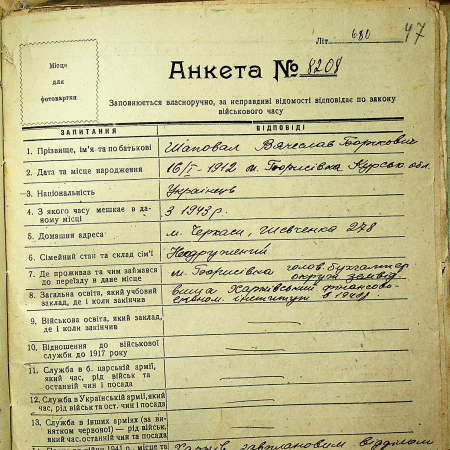 Літ. 680 47
Місце
для
фотокартки
Анкета № 8208
Заповнюється власноручно, за неправдиві відомості відповідає по закону
військового часу
ЗАПИТАННЯ ВІДПОВІДІ
1. Прізвище, ім'я та по батькові Шаповал Вячеслав
2. Дата та місце народження 16/I - 1912 м. Борисівка Курськ. обл.
3. Національність Українець
4. З якого часу мешкає в да-
ному місці З 1943 р.
5. Домашня адреса м. Черкаси, Шевченка 278
6. Сімейний стан та склад сім'ї Неодружений
7. Де проживав та чим займався
до переїзду в дане місце м. Борисівка голов. бухгалтер
8. Загальна освіта, який учбовий
заклад, де і коли закінчив вища Харківський фінансово-
економ. інститут в 1940 р
9. Військова освіта, який заклад,
де і коли закінчив
10. Відношення до військової
служби до 1917 року
11. Служба в б. царській армії,
який час, рід військ та
останній чин і посада
12. Служба в Українській армії, який
час, рід військ та ост. чин і посада
13. Служба в інших арміях (за ви-
нятком червоної) — рід військ,
який час, останній чин та посада
1941 р., місце та Харків завплановим відділом